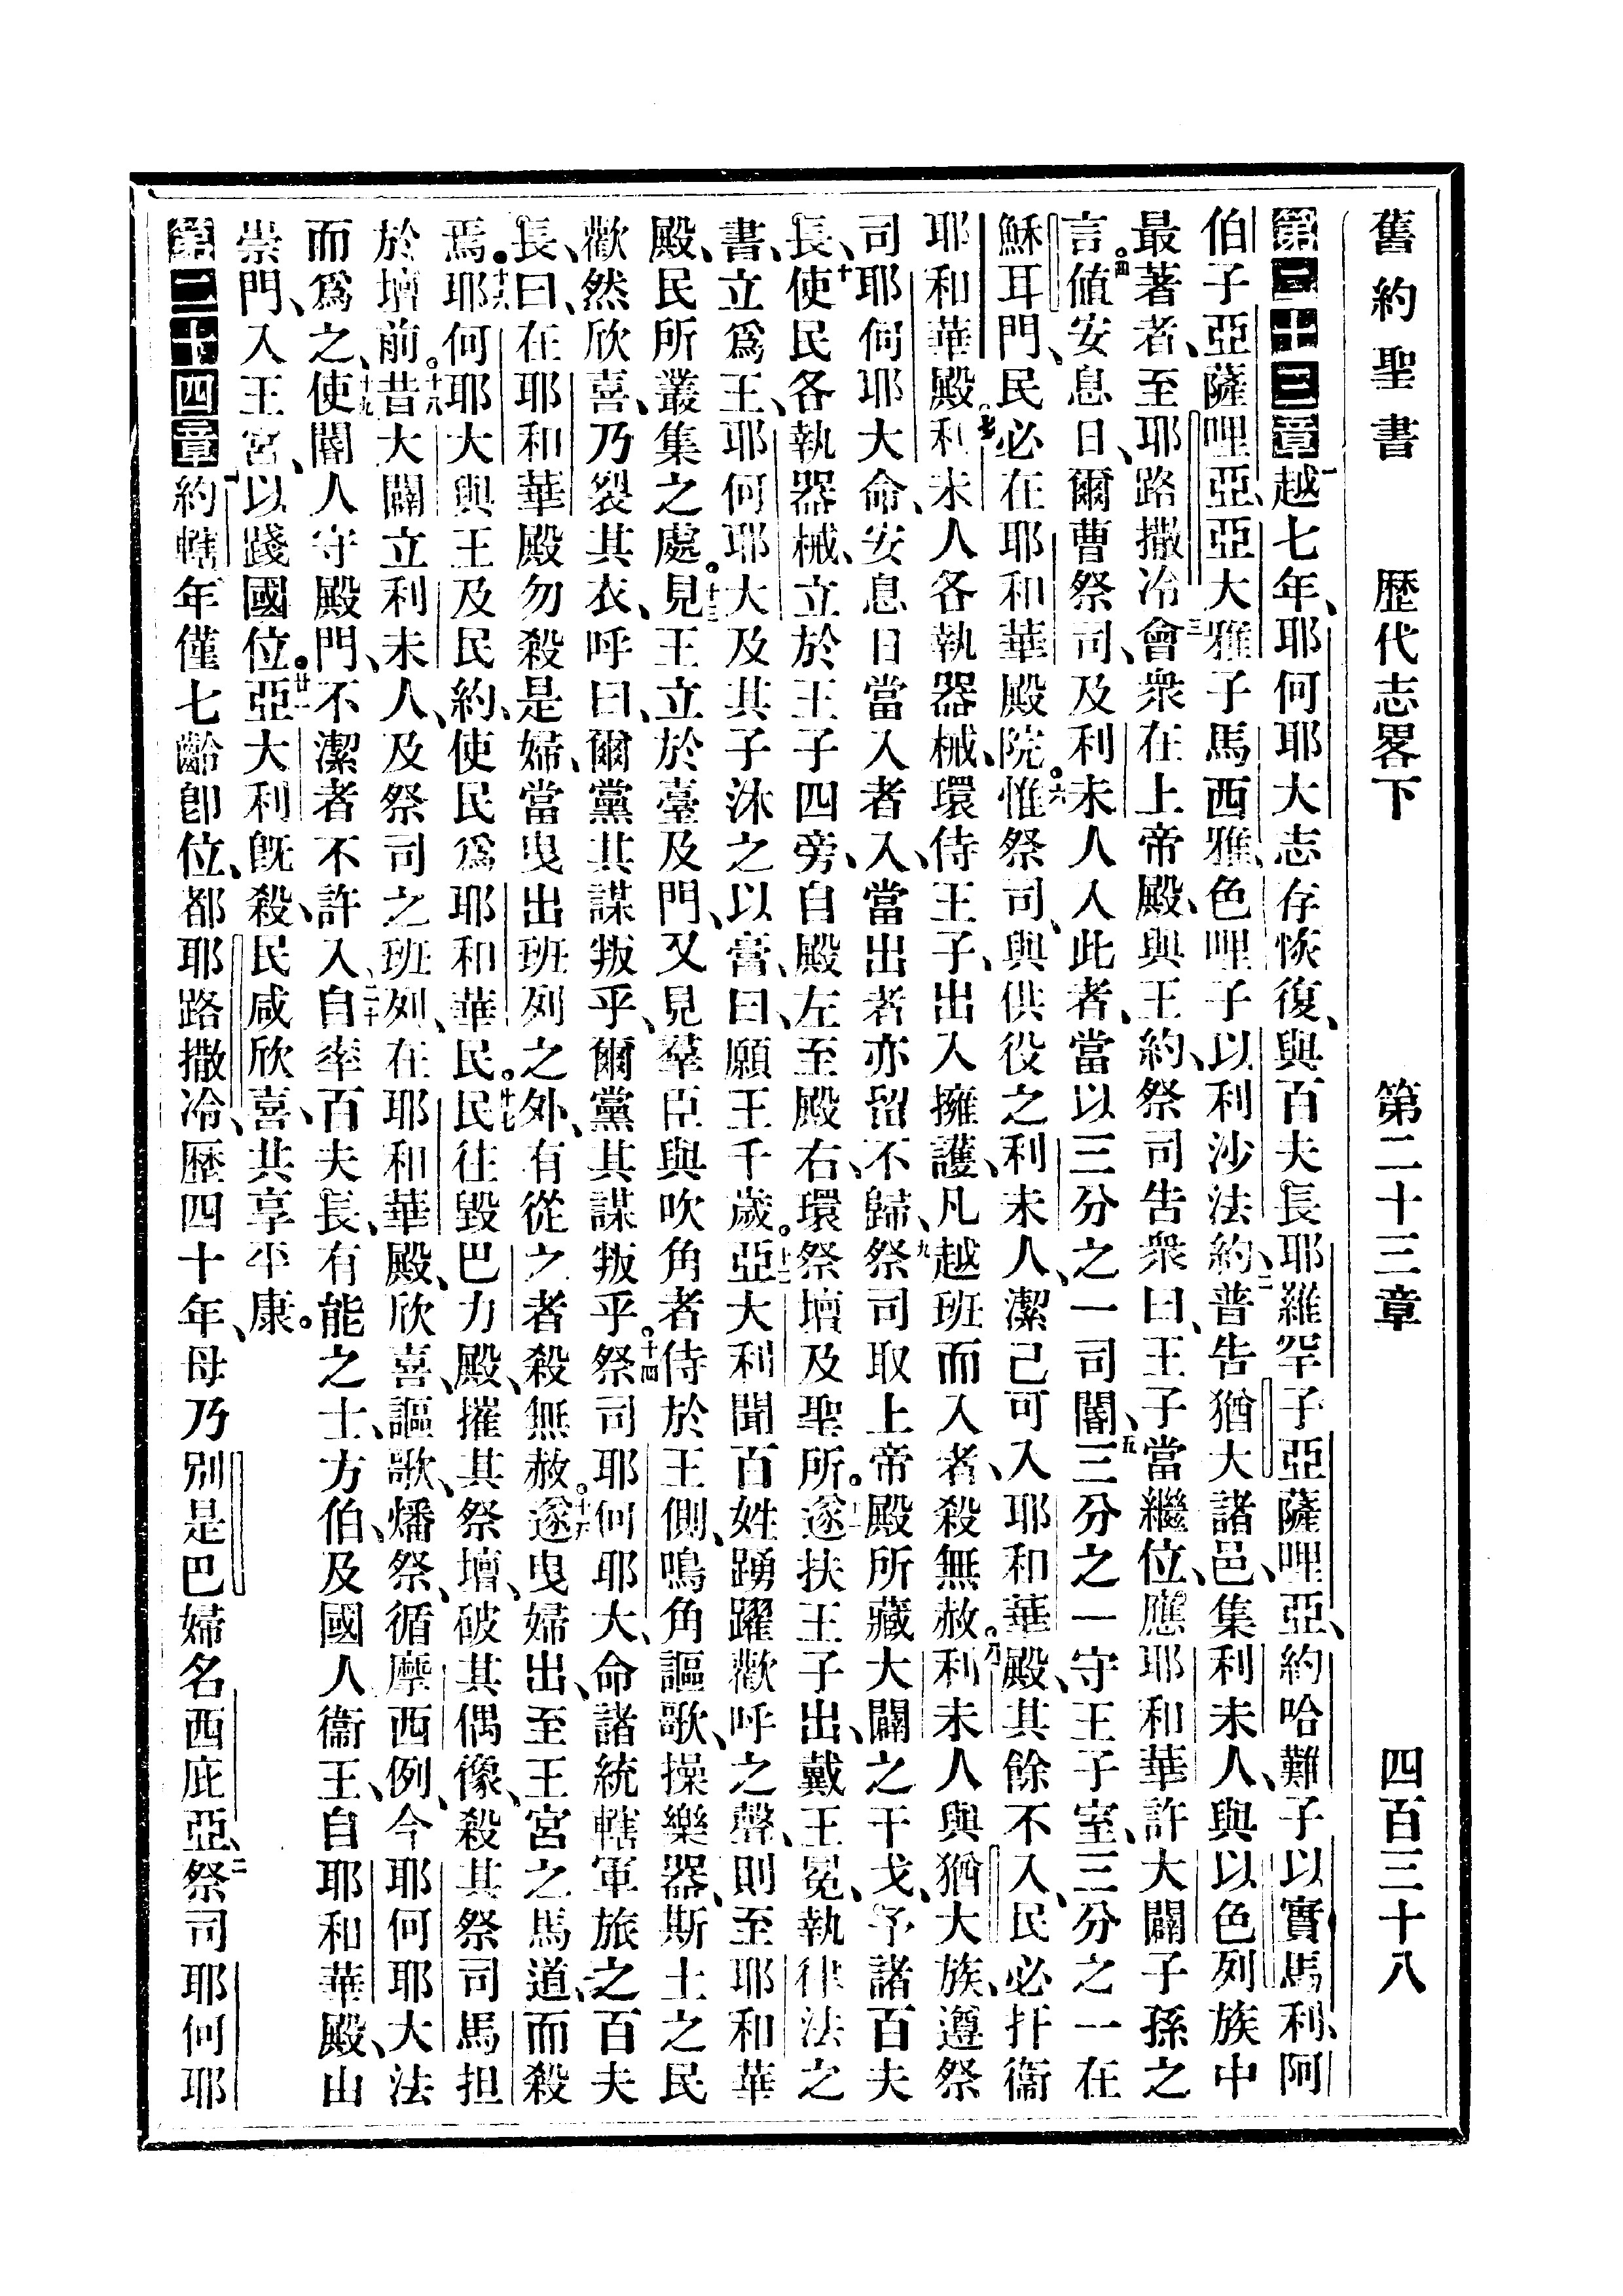 舊約聖書 歷代志畧下 第二十三章 四百三十八
第二十三章一越七年、耶何耶大志存恢復、與百夫長耶羅罕子亞薩哩亞、約哈難子以實馬利、阿
伯子亞薩哩亞、亞大雅子馬西雅、色哩子以利沙法約、二普告猶大諸邑、集利未人、與以色列族中
最著者、至耶路撒冷、三會衆在上帝殿、與王約、祭司告衆曰、王子當繼位、應耶和華許大闢子孫之
言。四値安息日、爾曹祭司、及利未人人此者、當以三分之一司閽、五三分之一守王子室、三分之一在
穌耳門、民必在耶和華殿院。六惟祭司、與供役之利未人、潔己可入耶和華殿、其餘不入、民必扞衞
耶和華殿。七利未人各執器械、環侍王子、出入擁護、凡越班而入者、殺無赦。八利未人與猶大族、遵祭
司耶何耶大命、安息日當入者、入、當出者亦留不歸、九祭司取上帝殿所藏大闢之干戈、予諸百夫
長、十使民各執器械、立於王子四旁、自殿左至殿右、環祭壇及聖所。十一遂扶王子出、戴王冕、執律法之
書、立爲王、耶何耶大及其子沐之以膏、曰、願王千歲。十二亞大利聞百姓踴躍歡呼之聲、則至耶和華
殿、民所叢集之處。十三見王立於臺及門、又見羣臣與吹角者侍於王側、鳴角謳歌、操樂器、斯土之民
歡然欣喜、乃裂其衣、呼曰、爾黨其謀叛乎、爾黨其謀叛乎。十四祭司耶何耶大、命諸統轄軍旅之百夫
長、曰、在耶和華殿勿殺是婦、當曳出班列之外、有從之者殺無赦。十五遂曳婦出、至王宮之馬道、而殺
焉。十六耶何耶大與王及民約、使民爲耶和華民。十七民往毀巴力殿、摧其祭壇、破其偶像、殺其祭司馬担
於壇前。十八昔大闢立利未人、及祭司之班列、在耶和華殿、欣喜、謳歌、燔祭、循摩西例、今耶何耶大法
而爲之、十九使閽人守殿門、不潔者不許入、二十自率百夫長、有能之士、方伯、及國人衞王、自耶和華殿、由
崇門、入王宮、以踐國位。廿一亞大利旣殺、民咸欣喜、共享平康。
第二十四章一約轄年僅七齡卽位、都耶路撒冷、歷四十年、母乃別是巴婦名西庇亞、二祭司耶何耶